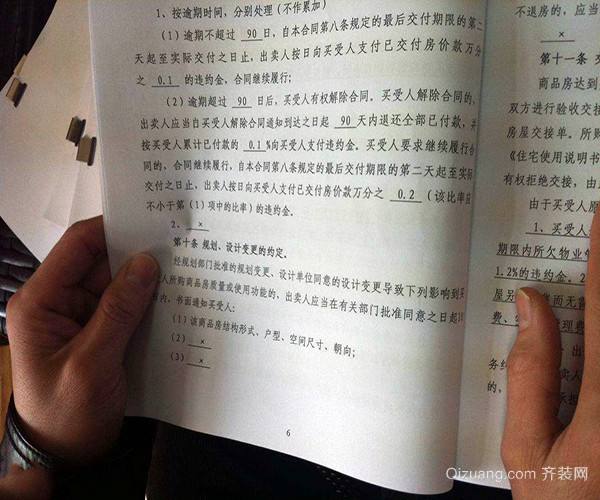 1、按逾期时间，分别处理（不作累加）
（1）逾期不超过 90 日，自本合同第八条规定的最后交付期限的第二
天起至实际交付之日止，出卖人按日向买受人支付已交付房价款万分
之 0.1 的违约金，合同继续履行；
（2）逾期超过 90 日后，买受人有权解除合同。买受人解除合同的，
出卖人应当自买受人解除合同通知到达之日起 90 天内退还全部已付款，并
按买受人累计已付款的 0.1 %向买受人支付违约金。买受人要求继续履行合
同的，合同继续履行，自本合同第八条规定的最后交付期限的第二天起至实际
交付之日止，出卖人按日向买受人支付已交付房价款万分之 0.2 （该比率应
不小于第（1）项中的比率）的违约金。
2、 ×
第十条 规划、设计变更的约定。
经规划部门批准的规划变更、设计单位同意的设计变更导致下列影响到买
人所购商品房质量或使用功能的，出卖人应当在有关部门批准同意之日起10
内，书面通知买受人：
（1）该商品房结构形式、户型、空间尺寸、朝向；
（2） ×
（3） ×
6
不退房的，应当
×
第十一条 交
商品房达到
双方进行验收交接
房屋交接单。所购
《住宅使用说明书
有权拒绝交接，由
由于买受人原
1、买受人
期限内所欠物业
1.2%的违约金。2
屋另 而无
费、 理费
出
务 卖人
的， 承担
Qizuang.com 齐装网